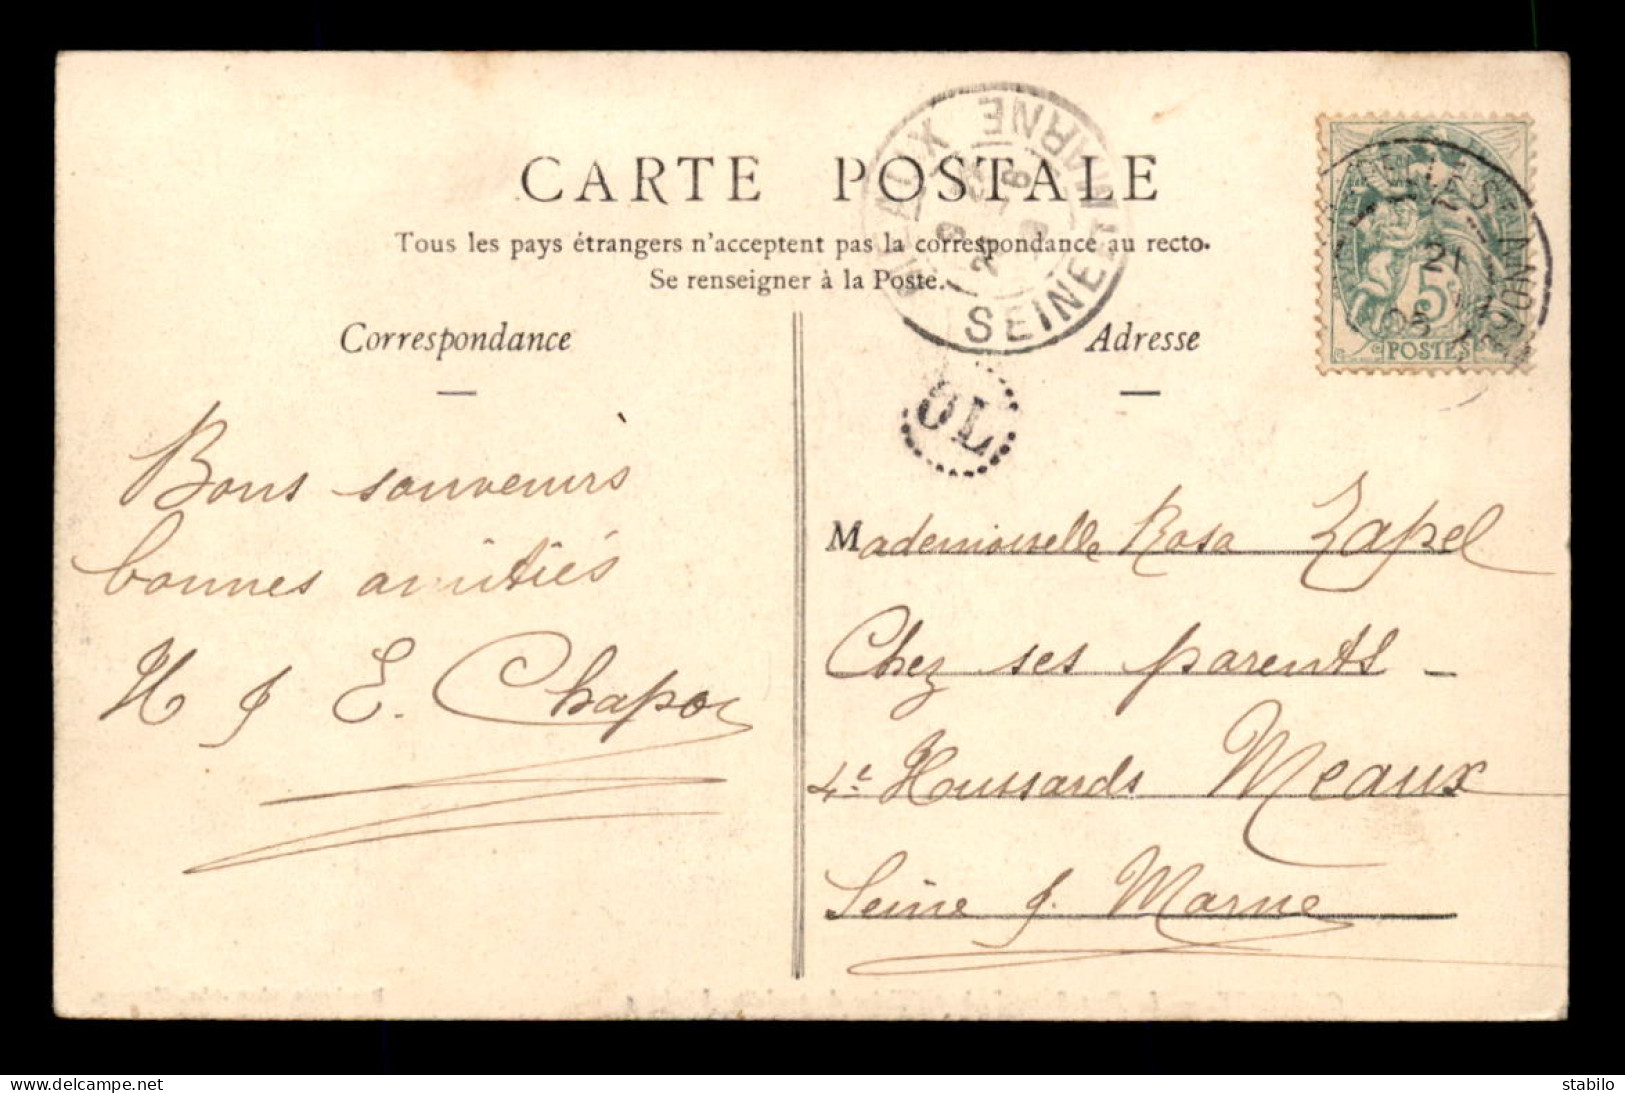 CARTE POSTALE
Tous les pays étrangers n'acceptent pas la correspondance au recto.
Se renseigner à la Poste.
Correspondance
Adresse
MEAUX
SEINE ET MARNE
OL
21
05
5
POSTES
Bons souvenirs
bonnes amitiés
H & E. Chapoz
Mademoiselle Rosa Zapel
Chez ses parents -
4e Hussards Meaux
Seine & Marne
www.delcampe.net
stabilo